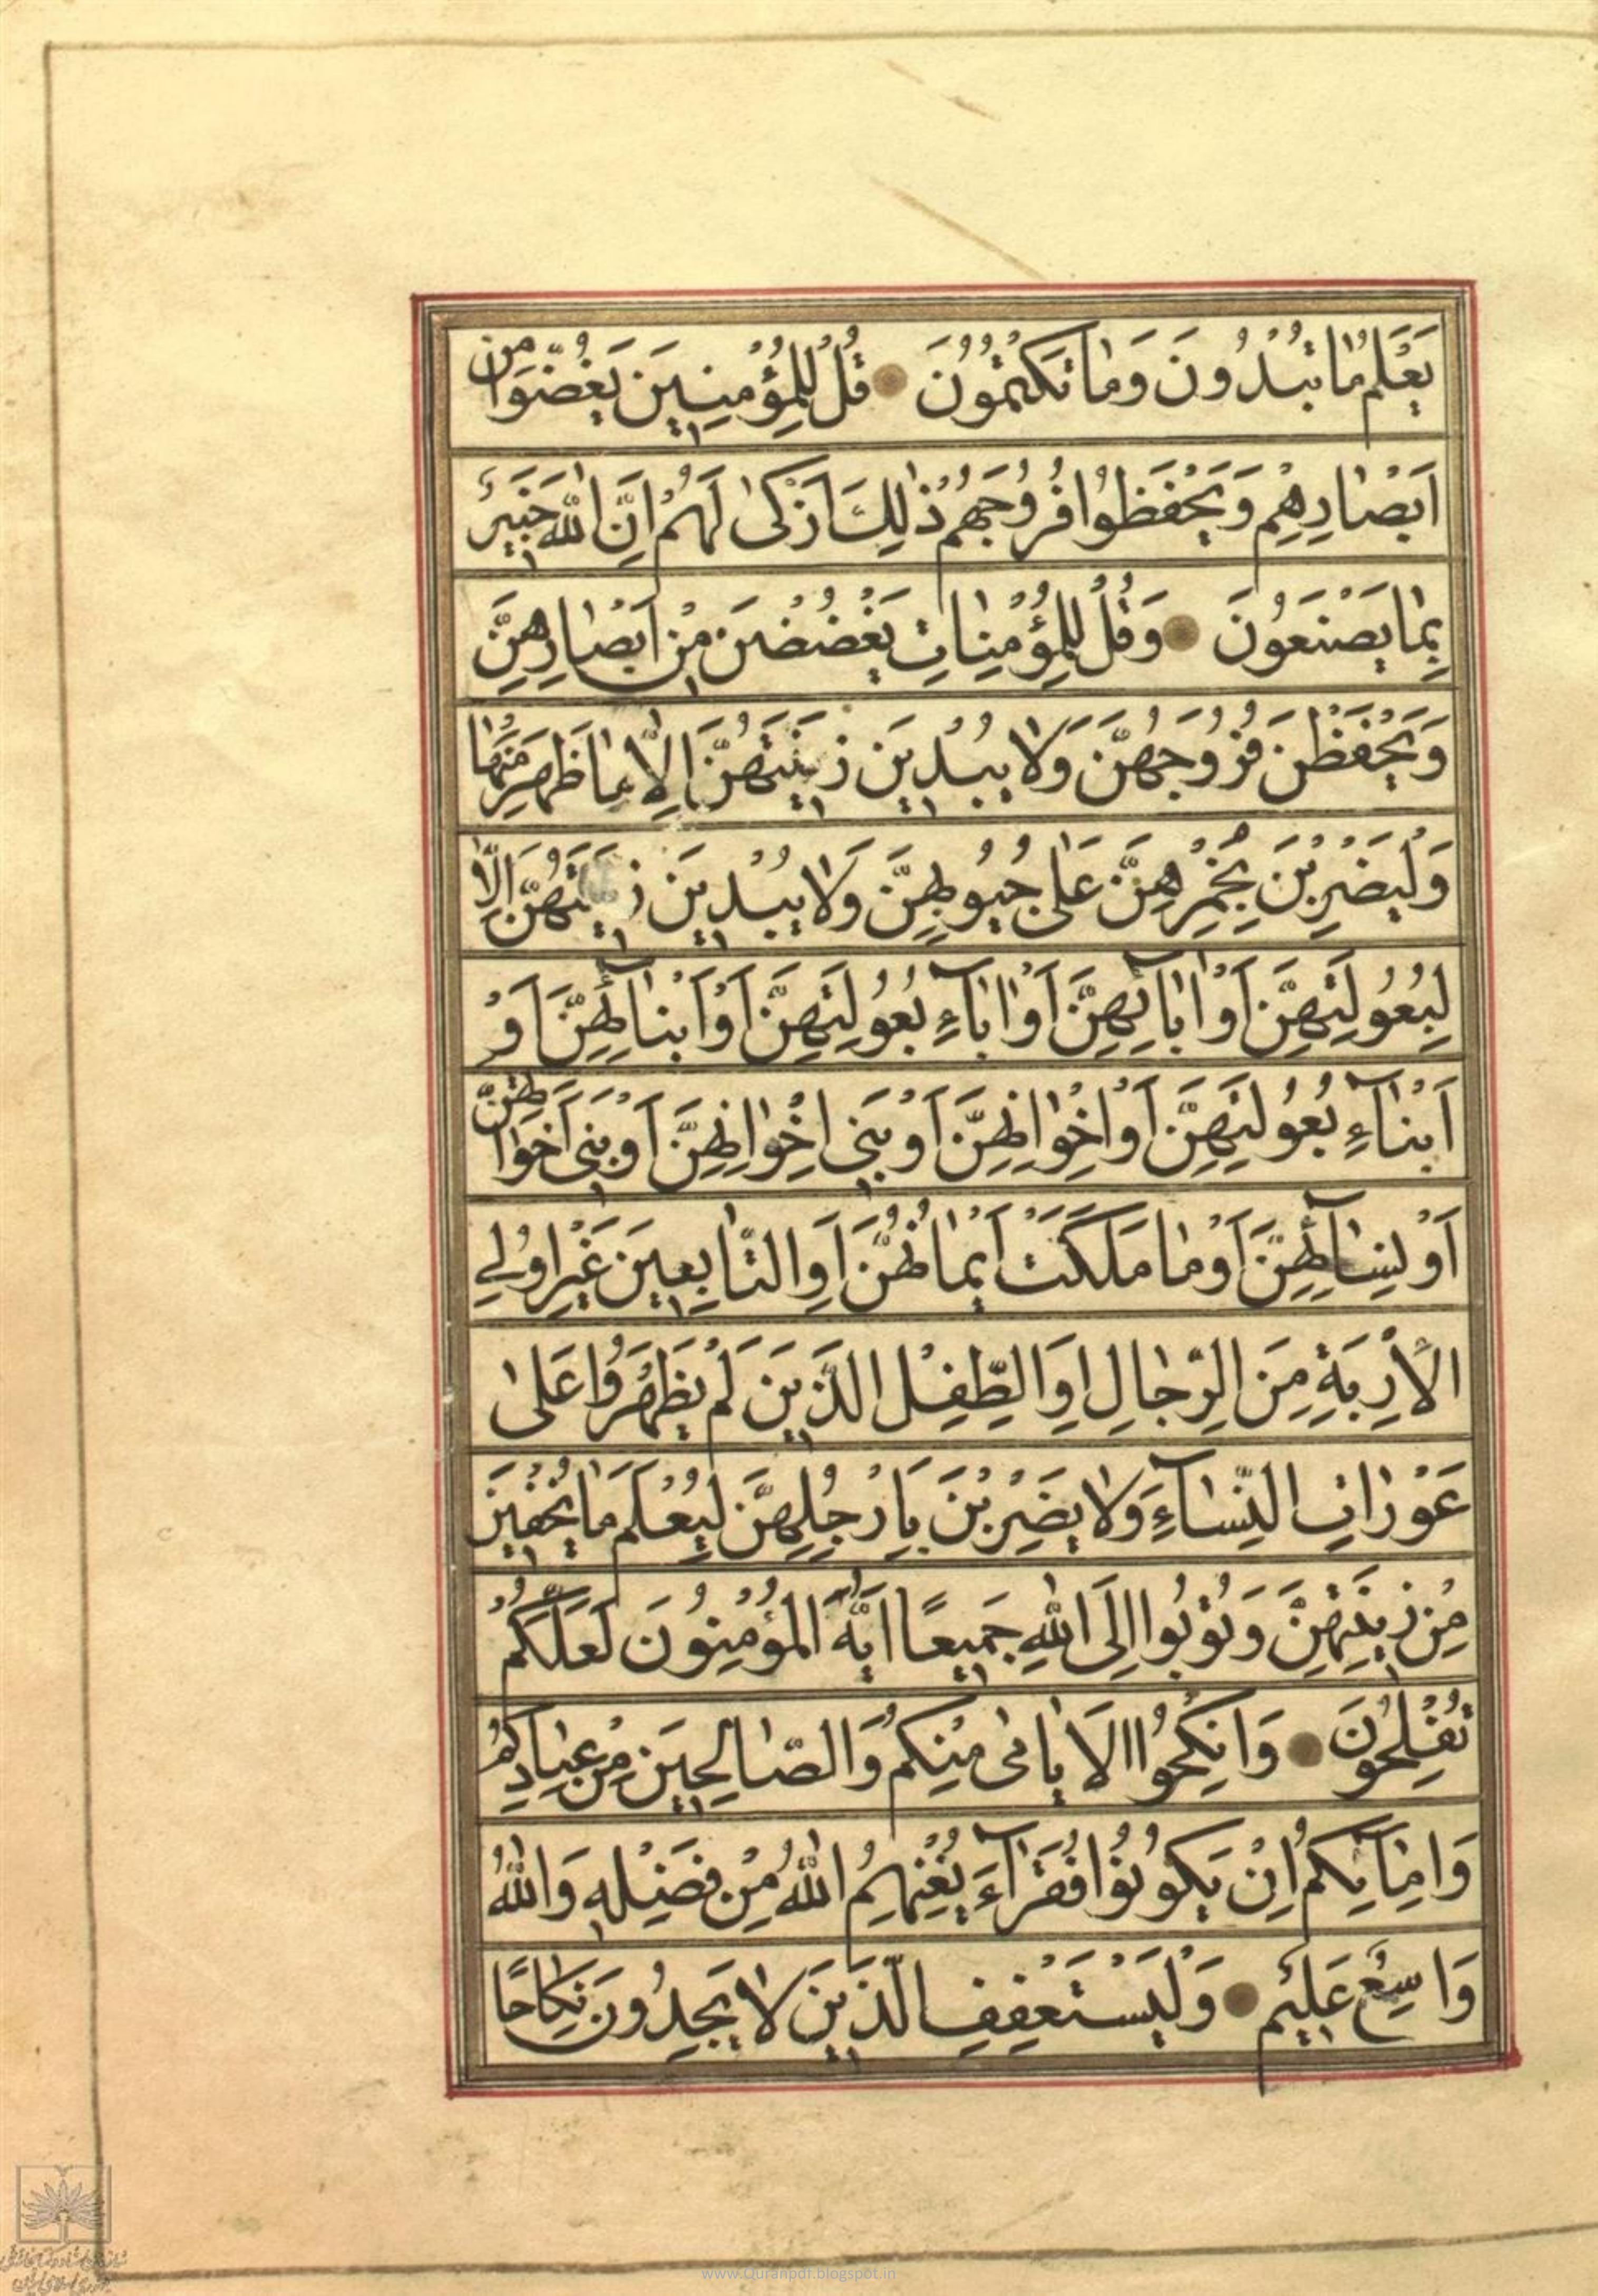 يَعْلَمُ مٰا تُبْدُونَ وَمٰا تَكْتُمُونَ قُلْ لِلْمُؤْمِنِينَ يَغُضُّوا مِنْ
اَبْصٰارِهِمْ وَيَحْفَظُوا فُرُوجَهُمْ ذٰلِكَ اَزْكٰى لَهُمْ اِنَّ اللّٰهَ خَبِيرٌ
بِمٰا يَصْنَعُونَ وَقُلْ لِلْمُؤْمِنٰاتِ يَغْضُضْنَ مِنْ اَبْصٰارِهِنَّ
وَيَحْفَظْنَ فُرُوجَهُنَّ وَلٰا يُبْدِينَ زِينَتَهُنَّ اِلّٰا مٰا ظَهَرَ مِنْهٰا
وَلْيَضْرِبْنَ بِخُمُرِهِنَّ عَلٰى جُيُوبِهِنَّ وَلٰا يُبْدِينَ زِينَتَهُنَّ اِلّٰا
لِبُعُولَتِهِنَّ اَوْ اٰبٰآئِهِنَّ اَوْ اٰبٰآءِ بُعُولَتِهِنَّ اَوْ اَبْنٰآئِهِنَّ اَوْ
اَبْنٰآءِ بُعُولَتِهِنَّ اَوْ اِخْوٰانِهِنَّ اَوْ بَنِي اِخْوٰانِهِنَّ اَوْ بَنِي اَخَوٰاتِهِنَّ
اَوْ نِسٰآئِهِنَّ اَوْ مٰا مَلَكَتْ اَيْمٰانُهُنَّ اَوِ التّٰابِعِينَ غَيْرِ اُولِي
الْاِرْبَةِ مِنَ الرِّجٰالِ اَوِ الطِّفْلِ الَّذِينَ لَمْ يَظْهَرُوا عَلٰى
عَوْرٰاتِ النِّسٰآءِ وَلٰا يَضْرِبْنَ بِاَرْجُلِهِنَّ لِيُعْلَمَ مٰا يُخْفِينَ
مِنْ زِينَتِهِنَّ وَتُوبُوا اِلَى اللّٰهِ جَمِيعًا اَيُّهَ الْمُؤْمِنُونَ لَعَلَّكُمْ
تُفْلِحُونَ وَاَنْكِحُوا الْاَيٰامٰى مِنْكُمْ وَالصّٰالِحِينَ مِنْ عِبٰادِكُمْ
وَاِمٰآئِكُمْ اِنْ يَكُونُوا فُقَرٰآءَ يُغْنِهِمُ اللّٰهُ مِنْ فَضْلِهِ وَاللّٰهُ
وٰاسِعٌ عَلِيمٌ وَلْيَسْتَعْفِفِ الَّذِينَ لٰا يَجِدُونَ نِكٰاحًا
www.Quranpdf.blogspot.in